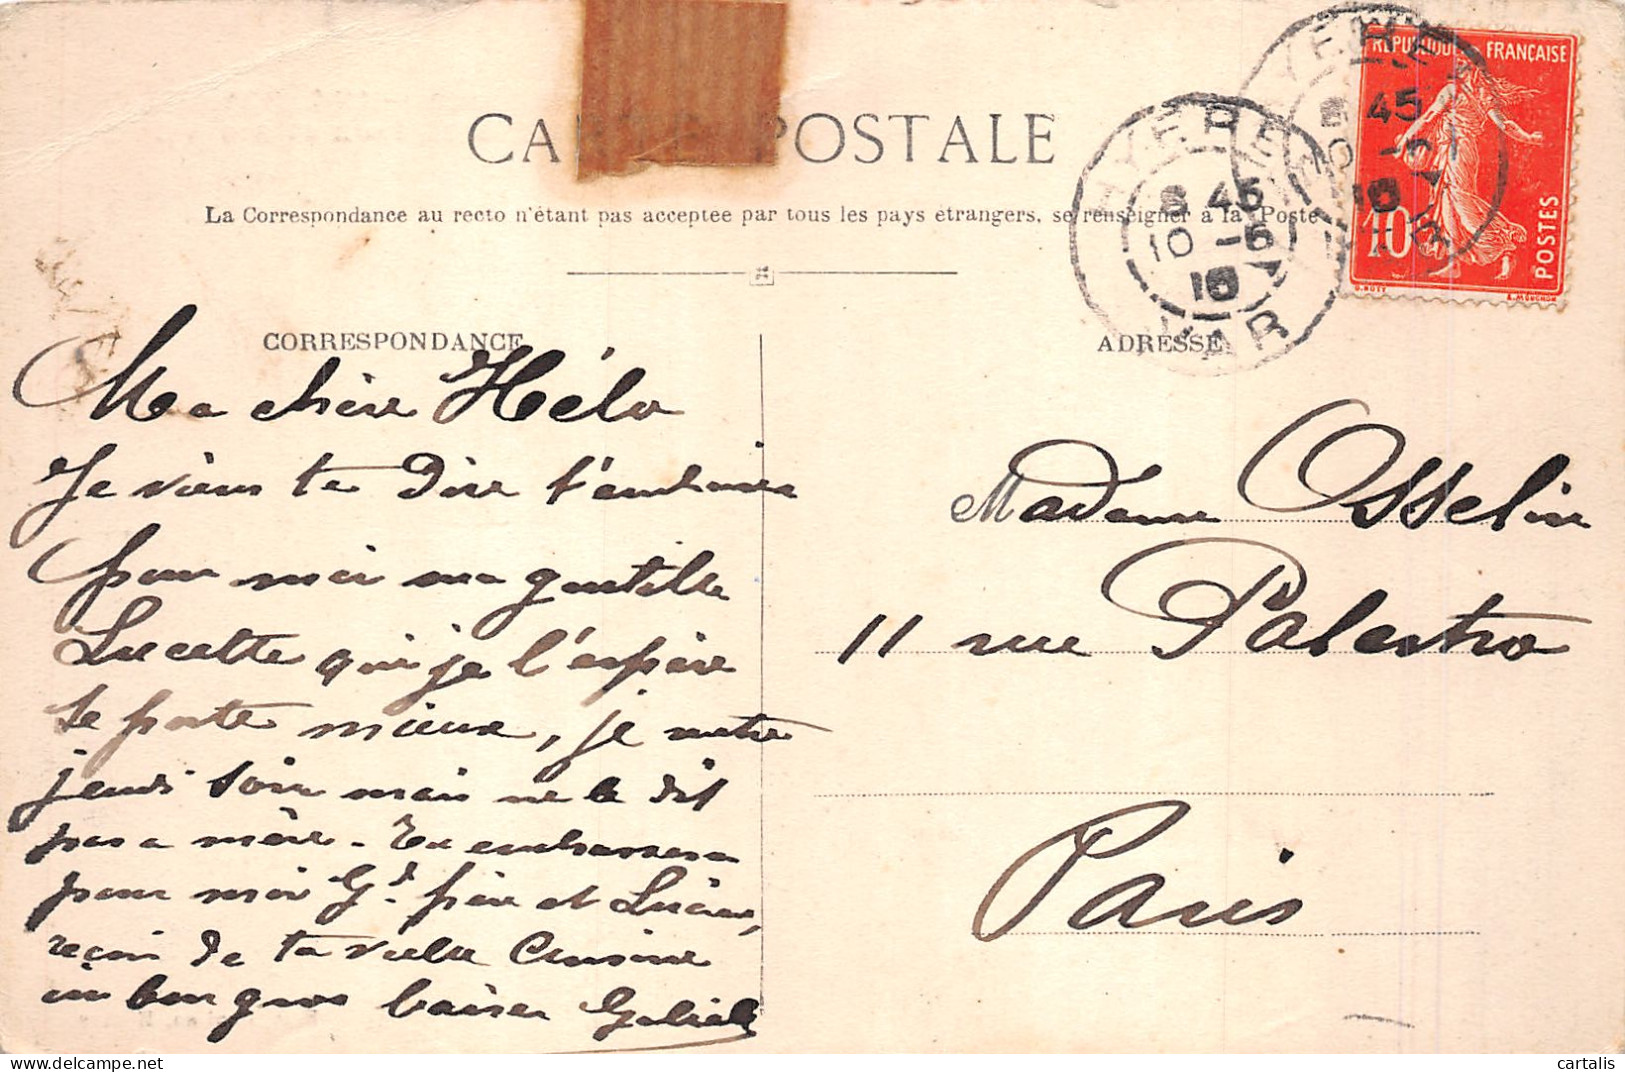 CARTE POSTALE
La Correspondance au recto n'étant pas acceptée par tous les pays étrangers, se renseigner à la Poste
CORRESPONDANCE
Ma chère Hélo
Je viens te dire t'embrasser
pour moi ma gentille
Lucette qui je l'espère
se porte mieux, je rentre
jeudi soir mais ne le dit
pas a mère. Tu embrassera
pour moi Gd père et Lucien,
reçoi de ta vielle Cousine
un bon gros baiser Gabrielle
ADRESSE
Madame Osselin
11 rue Palestro
Paris
HYERES
8 45
10 -5
10
VAR
HYERES
45
10
VAR
REPUBLIQUE FRANÇAISE
10
POSTES
O. ROTY
E. MOUCHON
cartalis